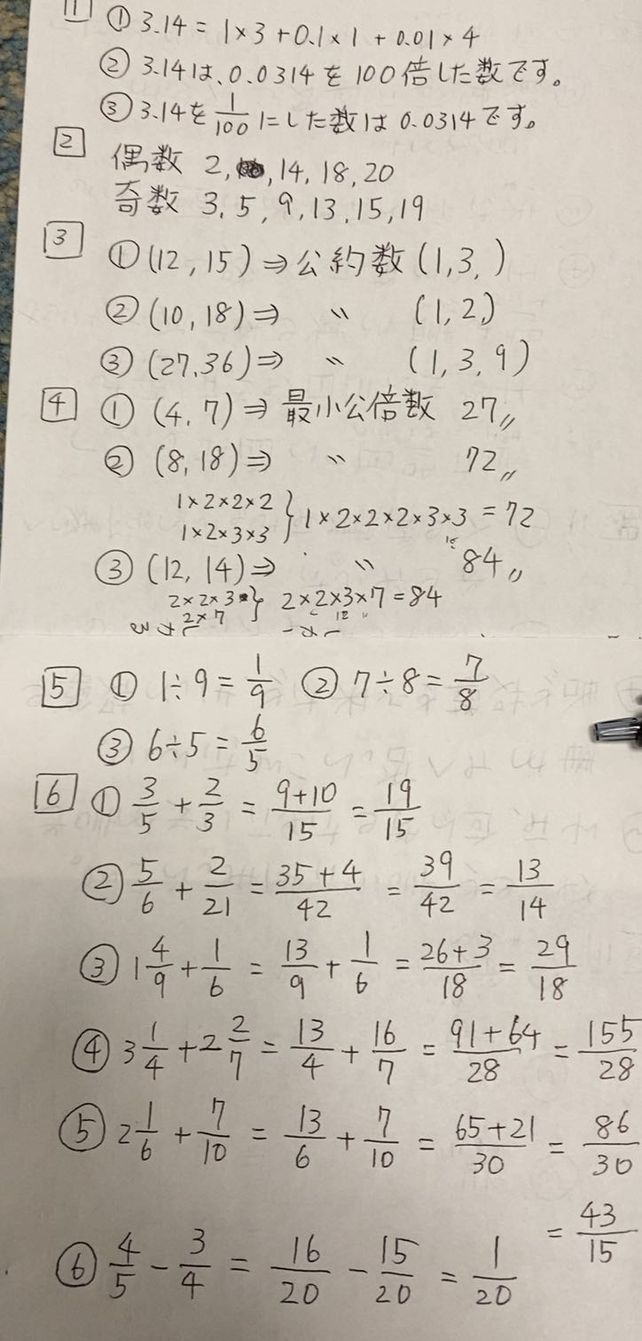 1 ① 3.14 = 1×3+0.1×1+0.01×4
② 3.14は、0.0314を100倍した数です。
③ 3.14を1/100にした数は0.0314です。
2 偶数 2, , 14, 18, 20
奇数 3, 5, 9, 13, 15, 19
3 ① (12, 15) ⇒ 公約数 (1, 3, )
② (10, 18) ⇒ 〃 (1, 2,)
③ (27, 36) ⇒ 〃 (1, 3, 9)
4 ① (4, 7) ⇒ 最小公倍数 27〃
② (8, 18) ⇒ 〃 72〃
1×2×2×2
1×2×3×3 } 1×2×2×2×3×3 = 72
18
③ (12, 14) ⇒ 〃 84〃
2×2×3
2×7 } 2×2×3×7 = 84
12
5 ① 1÷9 = 1/9 ② 7÷8 = 7/8
③ 6÷5 = 6/5
6 ① 3/5 + 2/3 = 9+10/15 = 19/15
② 5/6 + 2/21 = 35+4/42 = 39/42 = 13/14
③ 1 4/9 + 1/6 = 13/9 + 1/6 = 26+3/18 = 29/18
④ 3 1/4 + 2 2/7 = 13/4 + 16/7 = 91+64/28 = 155/28
⑤ 2 1/6 + 7/10 = 13/6 + 7/10 = 65+21/30 = 86/30
= 43/15
⑥ 4/5 - 3/4 = 16/20 - 15/20 = 1/20